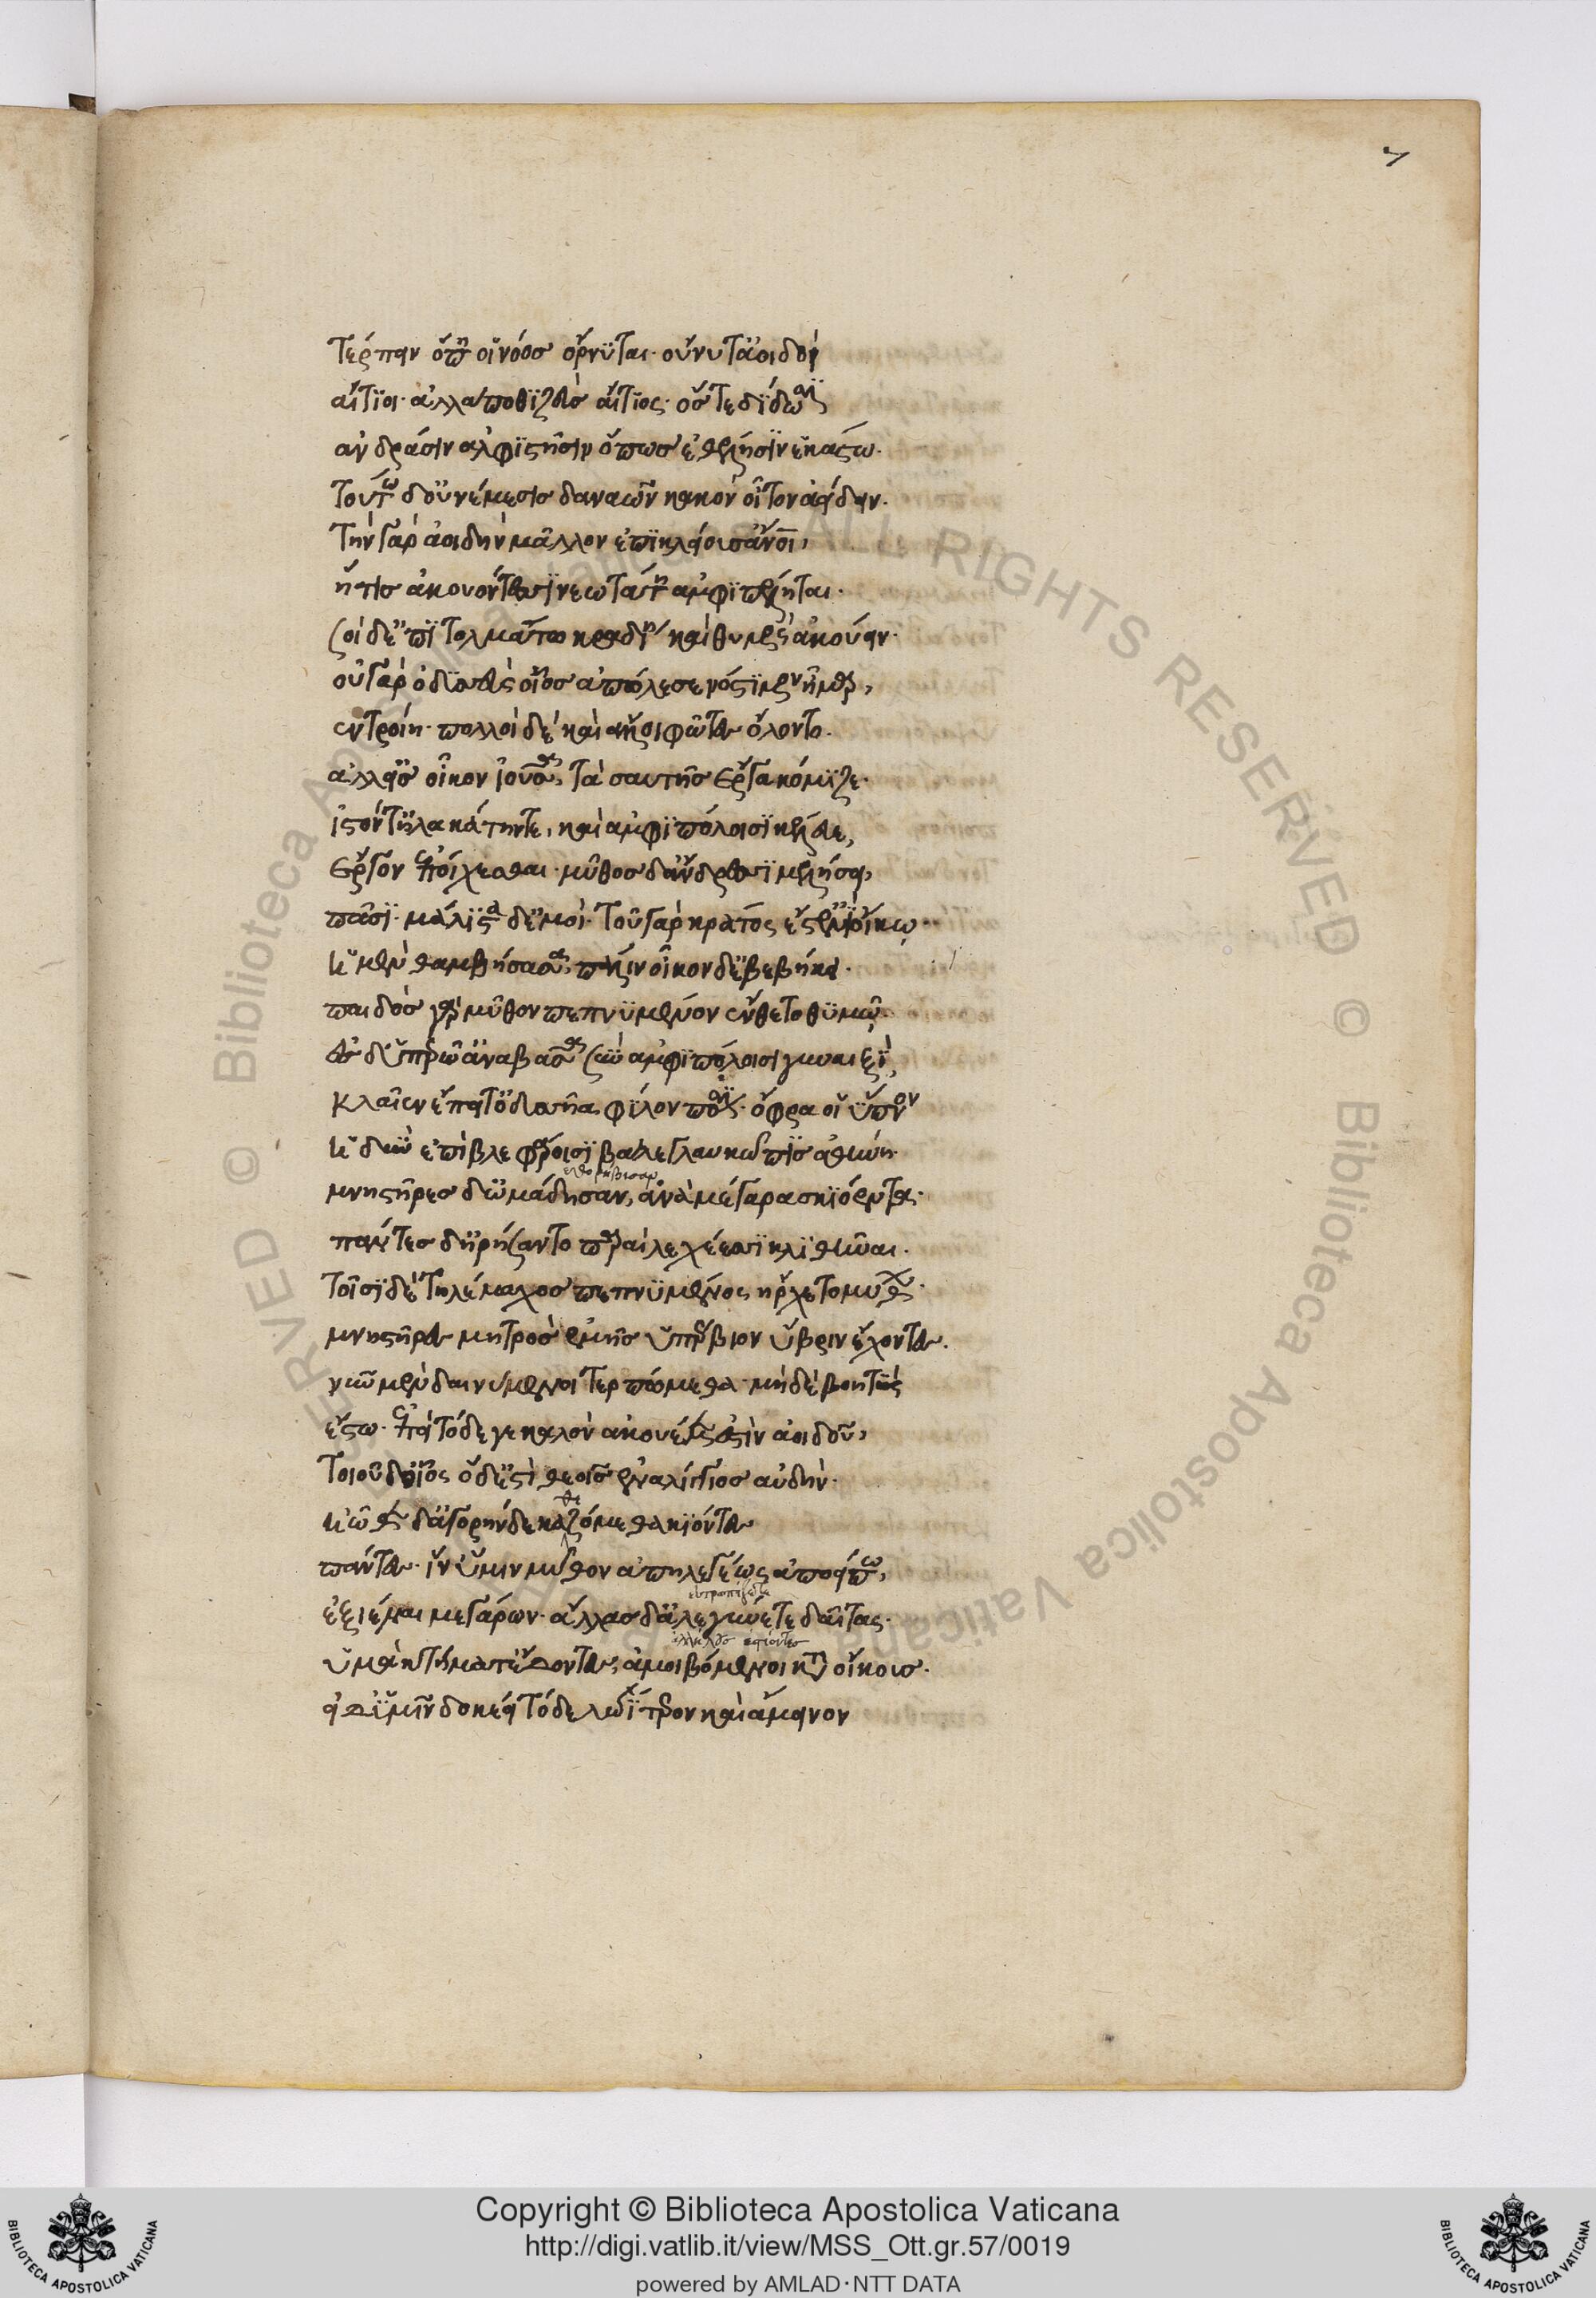 7
τέρπειν ὅππη οἱ νόος ὄρνυται· οὔ νύ τ' ἀοιδοὶ
αἴτιοι· ἀλλά ποθι ζεὺς αἴτιος· ὅς τε δίδωσιν
ἀνδράσιν ἀλφιστῆσιν ὅπως ἐθέλησιν ἑκάστω·
τούτω δ' οὐ νέμεσις δαναῶν κακὸν οἶτον ἀείδειν·
τὴν γὰρ ἀοιδὴν μᾶλλον ἐπικλείουσ' ἄνθρωποι,
ἥτις ἀκουόντεσσι νεωτάτη ἀμφιπέληται·
σοὶ δ' ἐπιτολμάτω κραδίη καὶ θυμὸς ἀκούειν·
οὐ γὰρ ὀδυσσεὺς οἶος ἀπώλεσε νόστιμον ἦμαρ,
ἐν τροίη· πολλοὶ δὲ καὶ ἄλλοι φῶτες ὄλοντο·
ἀλλ' εἰς οἶκον ἰοῦσα, τὰ σαυτῆς ἔργα κόμιζε·
ἱστόν τ' ἠλακάτην τε, καὶ ἀμφιπόλοισι κέλευε,
ἔργον ἐποίχεσθαι· μῦθος δ' ἄνδρεσσι μελήσει,
πᾶσι· μάλιστα δ' ἐμοί· τοῦ γὰρ κράτος ἔστ' ἐνὶ οἴκω·
ἡ μὲν θαμβήσασα, πάλιν οἶκον δὲ βεβήκει·
παιδὸς γὰρ μῦθον πεπνυμένον ἔνθετο θυμῶ·
ἐς δ' ὑπερῶ' ἀναβᾶσα σὺν ἀμφιπόλοισι γυναιξὶ,
κλαῖεν ἔπειτ' ὀδυσῆα, φίλον πόσιν· ὄφρα οἱ ὕπνον
ἡδὺν ἐπὶ βλεφάροισι βάλε γλαυκῶπις ἀθήνη·
μνηστῆρες δ' ὁμάδησαν, ἀνὰ μέγαρα σκιόεντα·
πάντες δ' ἠρήσαντο παραὶ λεχέεσσι κλιθῆναι·
τοῖσι δὲ τηλέμαχος πεπνυμένος ἤρχετο μύθων·
μνηστῆρες μητρὸς ἐμῆς ὑπέρβιον ὕβριν ἔχοντες·
νῦν μὲν δαινύμενοι τερπώμεθα· μὴ δὲ βοητὺς
ἔστω· ἐπεὶ τόδε γε καλὸν ἀκουέμεν ἐστὶν ἀοιδοῦ,
τοιοῦδ' οἷος ὅδ' ἐστὶ θεοῖς ἐναλίγκιος αὐδήν·
ἠῶθεν δ' ἀγορήνδε καθεζώμεθα κιόντες
πάντες· ἵν' ὕμιν μῦθον ἀπηλεγέως ἀποείπω,
ἐξιέναι μεγάρων· ἄλλας δ' ἀλεγύνετε δαῖτας·
ὑμὰ κτήματ' ἔδοντες, ἀμειβόμενοι κατὰ οἴκους·
εἰ δ' ὑμῖν δοκέει τόδε λωΐτερον καὶ ἄμεινον
Copyright © Biblioteca Apostolica Vaticana
http://digi.vatlib.it/view/MSS_Ott.gr.57/0019
powered by AMLAD·NTT DATA
BIBLIOTECA APOSTOLICA VATICANA
BIBLIOTECA APOSTOLICA VATICANA